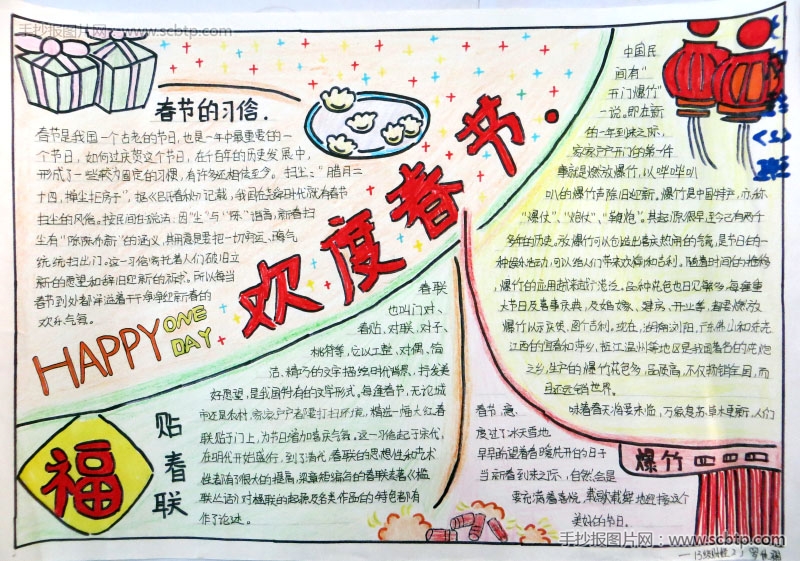 手抄报图片网：www.scbtp.com
春节的习俗.
春节是我国一个古老的节日,也是一年中最重要的一
个节日,如何过庆贺这个节日,在千百年的历史发展中,
形成了一些较为固定的习惯,有许多还相传至今。扫尘:"腊月二
十四,掸尘扫房子",据《吕氏春秋》记载,我国在尧舜时代就有春节
扫尘的风俗。按民间的说法:因"尘"与"陈"谐音,新春扫
尘有"除陈布新"的涵义,其用意是要把一切
统统扫出门。这一习俗寄托着人们破旧立
新的愿望和辞旧迎新的祈求。所以每当
春节到处都洋溢着干干净净迎新春的
欢乐气氛。
HAPPY ONE DAY
欢度春节.
中国民
间有"
开门爆竹"
一说。即在新
的一年到来之际,
家家户户开门的第一件
事就是燃放爆竹,以哔哔叭
叭的爆竹声除旧迎新。爆竹是中国特产,亦称
"爆仗"、"炮仗"、"鞭炮"。其起源很早,迄今已有两千
多年的历史。放爆竹可以创造出喜庆热闹的气氛,是节日的一
种娱乐活动,可以给人们带来欢愉和吉利。随着时间的推移,
爆竹的应用越来越广泛,品种花色也日见繁多,每逢重
大节日及喜事庆典,及婚嫁、建房、开业等,都要燃放
爆竹以示庆贺,图个吉利。现在,湖南浏阳,广东佛山和东尧
江西的宜春和萍乡,浙江温州等地区是我国著名的花炮
之乡,生产的爆竹花色多,品质高,不仅畅销全国,而
且还远销世界。
春联
也叫门对、
春贴、对联、对子、
桃符等,它以工整、对偶、简
洁、精巧的文字描绘时代背景,抒发美
好愿望,是我国特有的文学形式。每逢春节,无论城
市还是农村,家家户户都要打扫环境,精选一幅大红春
联贴于门上,为节日增加喜庆气氛。这一习俗起于宋代,
在明代开始盛行,到了清代,春联的思想性和艺术
性都有了很大的提高,梁章矩编写的春联专著《槛
联丛话》对楹联的起源及各类作品的特色都有
作了论述。
福
贴春联
春节,意
味着春天将要来临,万象复苏,草木更新,人们
度过了冰天雪地
早早盼望着春暖花开的日子
当新春到来之际,自然会是
要充满着喜悦,载歌载舞地迎接这个
美好的节日。
爆竹
手抄报图片网：www.scbtp.com